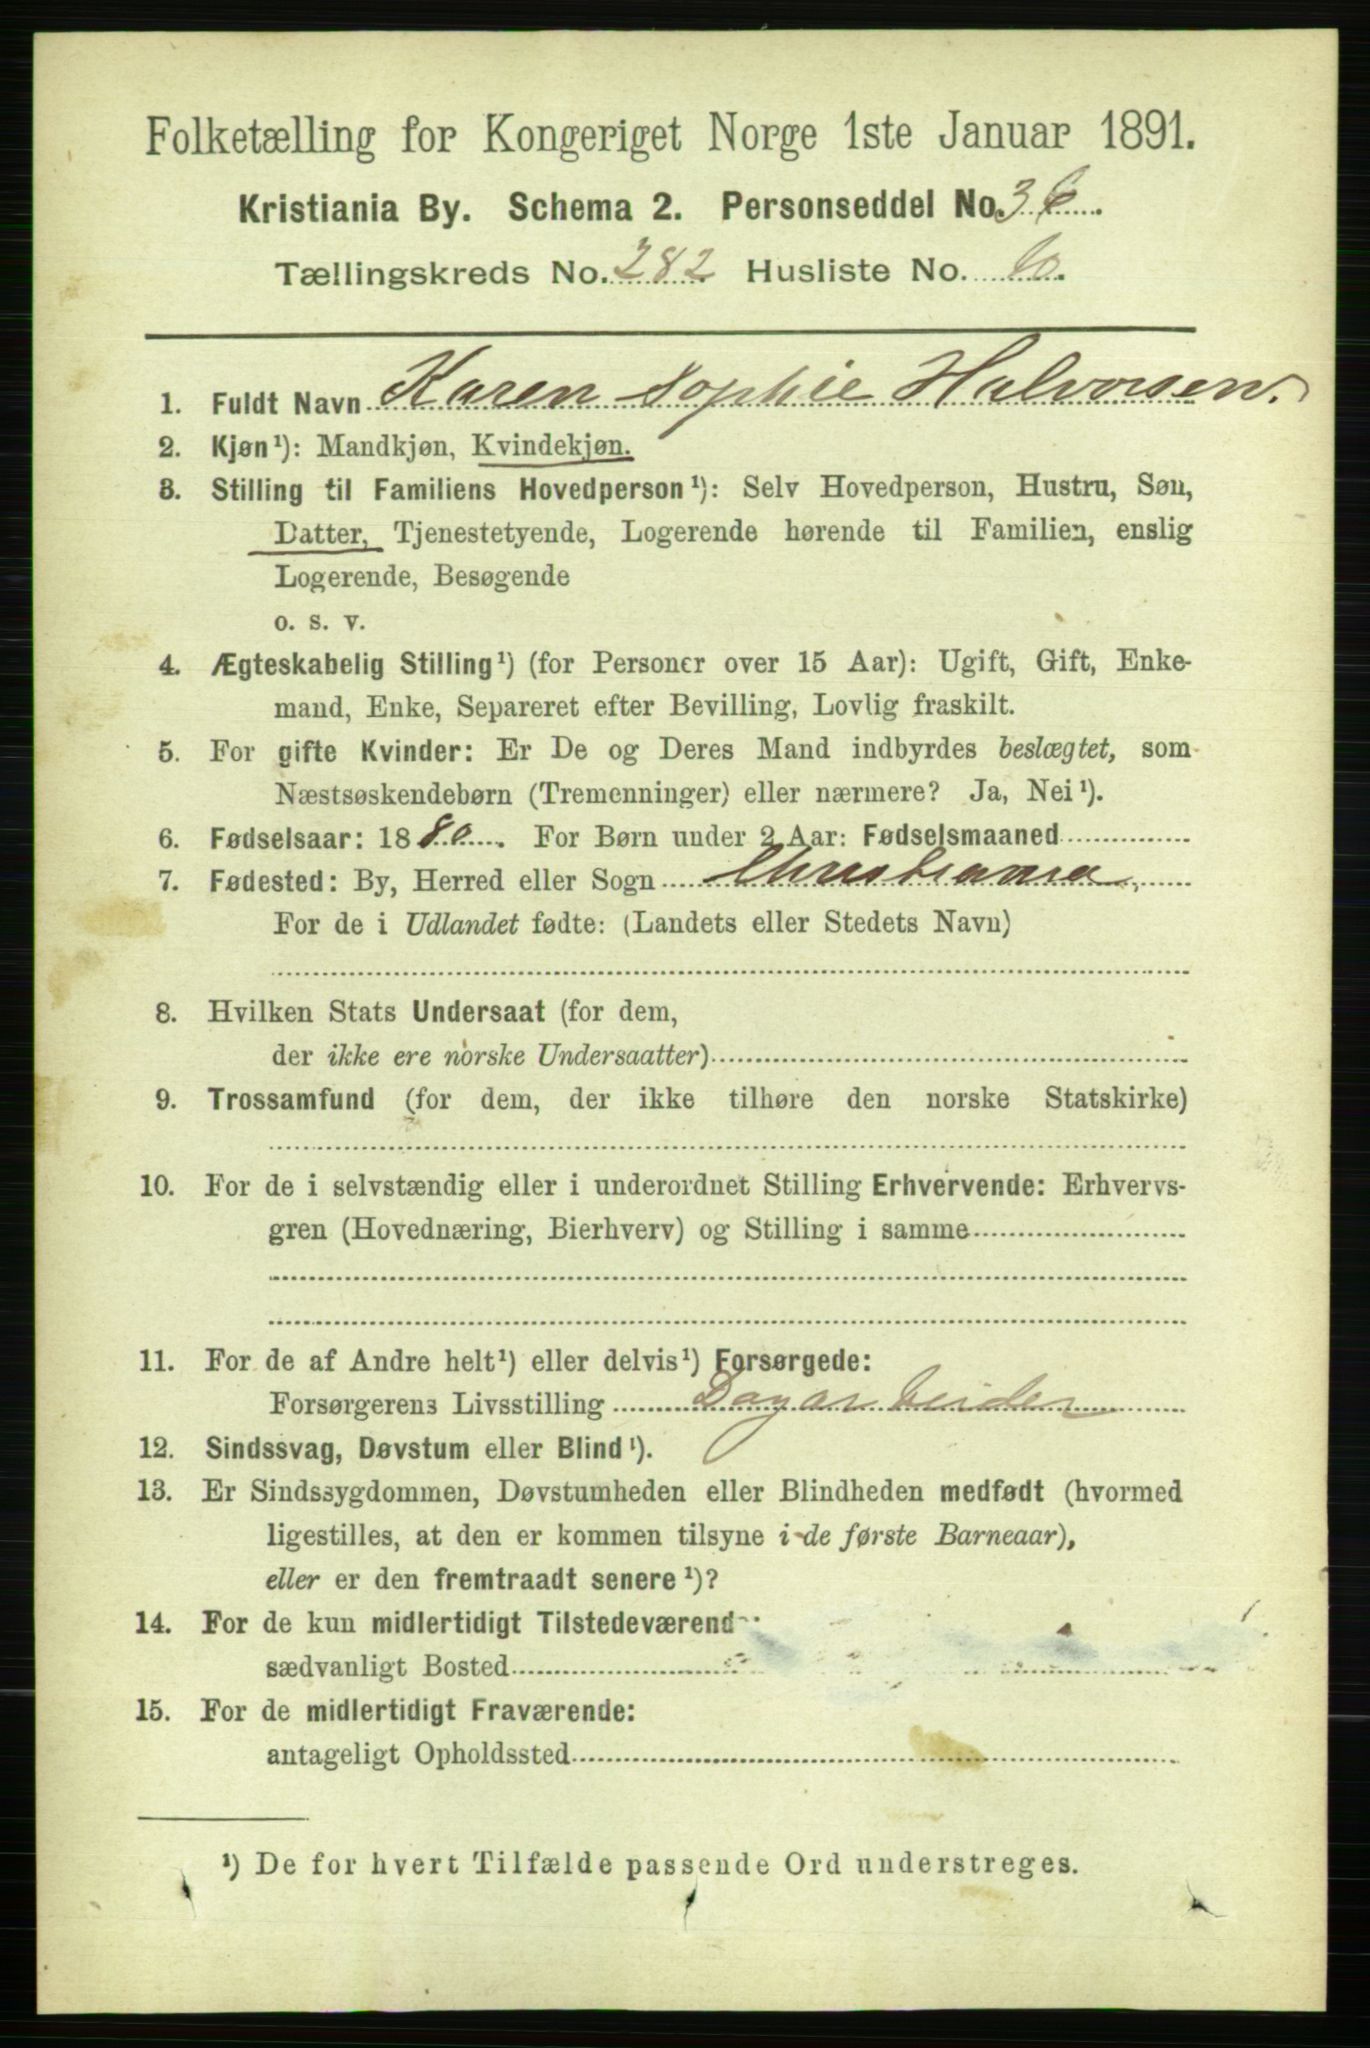 Folketælling for Kongeriget Norge 1ste Januar 1891.
Kristiania By. Schema 2. Personseddel No. 36.
Tællingskreds No. 282 Husliste No. 10.
1. Fuldt Navn Karen Sophie Halvorsen.
2. Kjøn¹): Mandkjøn, Kvindekjøn.
3. Stilling til Familiens Hovedperson¹): Selv Hovedperson, Hustru, Søn,
Datter, Tjenestetyende, Logerende hørende til Familien, enslig
Logerende, Besøgende
o. s. v.
4. Ægteskabelig Stilling¹) (for Personer over 15 Aar): Ugift, Gift, Enke-
mand, Enke, Separeret efter Bevilling, Lovlig fraskilt.
5. For gifte Kvinder: Er De og Deres Mand indbyrdes beslægtet, som
Næstsøskendebørn (Tremenninger) eller nærmere? Ja, Nei¹).
6. Fødselsaar: 1880. For Børn under 2 Aar: Fødselsmaaned
7. Fødested: By, Herred eller Sogn Christiania,
For de i Udlandet fødte: (Landets eller Stedets Navn)
8. Hvilken Stats Undersaat (for dem,
der ikke ere norske Undersaatter)
9. Trossamfund (for dem, der ikke tilhøre den norske Statskirke)
10. For de i selvstændig eller i underordnet Stilling Erhvervende: Erhvervs-
gren (Hovednæring, Bierhverv) og Stilling i samme
11. For de af Andre helt¹) eller delvis¹) Forsørgede:
Forsørgerens Livsstilling Dagarbeider
12. Sindssvag, Døvstum eller Blind¹).
13. Er Sindssygdommen, Døvstumheden eller Blindheden medfødt (hvormed
ligestilles, at den er kommen tilsyne i de første Barneaar),
eller er den fremtraadt senere¹)?
14. For de kun midlertidigt Tilstedeværend
sædvanligt Bosted
15. For de midlertidigt Fraværende:
antageligt Opholdssted
¹) De for hvert Tilfælde passende Ord understreges.